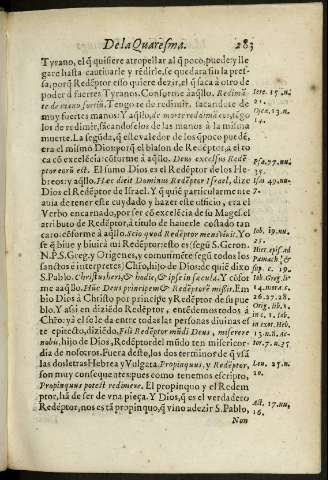 De la Quaresma. 283
Tyrano, el q̃ quisiere atropellar al q̃ poco, puede: y lle
gare hasta cautiuarle y rẽdirle, se quedara sin la pres-
sa, porq̃ Redẽptor esso quiere dezir, el q̃ saca à otro de
poder à fuertes Tyranos. Conforme à aq̃llo. Redimã
te de manu fortiũ. Tengo te de redimir, sacandote de
muy fuertes manos: Y aq̃llo, de morte redimã eos, tẽgo
los de redimir, sacãdoselos de las manos à la misma
muerte. La segũda, q̃ este valedor de los q̃ poco puedẽ,
era el mismo Dios: porq̃ el blason de Redẽptor, a el to
ca cõ excelẽcia: cõforme à aq̃llo. Deus excelsus Redẽ
ptor eorũ est. El sumo Dios es el Redẽptor de los He-
breos: y aq̃llo. Hæc dicit Dominus Redẽptor Israel, dize
Dios el Redẽptor de Israel. Y q̃ quiẽ particularmẽte
auia de tener este cuydado y hazer este officio, era el
Verbo encarnado, por ser cõ excelẽcia de su Magest. el
atributo de Redẽptor, à titulo de hauerle costado tan
caro: cõforme à aq̃llo. Scio quod Redẽptor meus viuit. Yo
se q̃ biue y biuirà mi Redẽptor: esto es segũ S. Geron.
N. P. S. Greg. y Origenes, y comunmẽte segũ todos los
sanctos è interpretes; Chr̃o, hijo de Dios: de quiẽ dixo
S. Pablo. Christus heri, & hodie, & ipse in sæcula. Y cõfor
me aq̃llo. Hũc Deus principem & Redẽptorẽ misit. Em
bio Dios à Christo por principe y Redẽptor de su pue
blo. Y assi en diziẽdo Redẽptor, entẽdemos todos à
Chr̃o: y à el solo de entre todas las personas diuinas es
te epitecto, diziẽdo, Fili Redẽptor mũdi Deus, miserere
nobis, hijo de Dios, Redẽptor del mũdo ten misericor-
dia de nosotros. Fuera desto, los dos terminos de q̃ vsã
las dos letras Hebrea y Vulgata Propinquus, y Redẽptor,
son muy conseque tes pues como tenemos escripto,
Propinquus potest redimere. El propinquo y el Redem
ptor, hã de ser de vna pieça. Y Dios, q̃ es el verdadero
Redẽptor, nos està propinquo, q̃ vino à dezir S. Pablo,
Non
Iere. 15. nu.
21.
Osea. 13. n.
14.
Psa. 77. nu.
35.
Isa. 49. nu.
7.
Iob. 19. nu.
25.